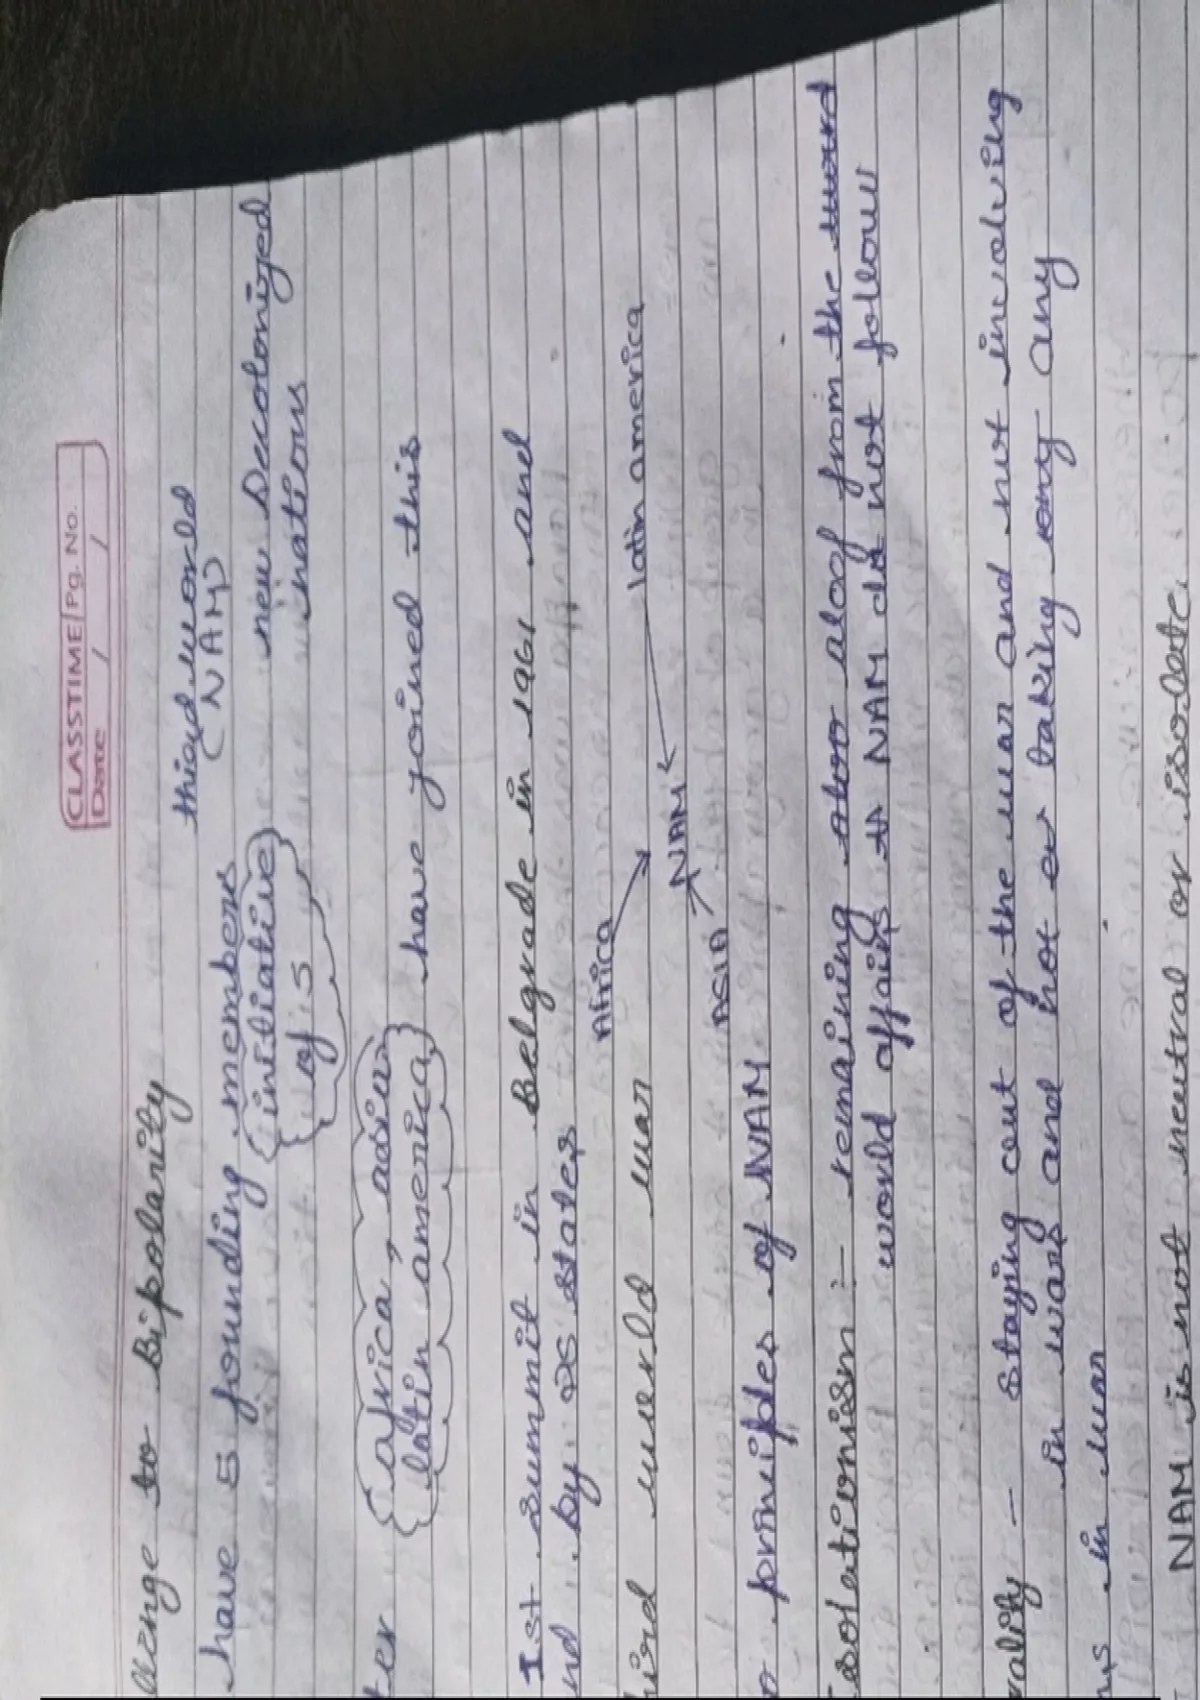 CLASSTIME Pg. No.
Date / /
llenge to Bipolarity
third world
(NAM)
have 5 founding members
new Decolonized
nations
{initiative}
of 5
ter {africa, asia
latin america} have joined this
Ist summit in Belgrade in 1961 and
nd by 25 states
Africa
hird world war
latin america
NAM
ASIA
o principles of NAM
solationism :- remaining aloof from the
world affairs NAM did not follow
rality - staying out of the war and not involving
in wars and not taking any
ns in war
NAM is not neutral or isolate.